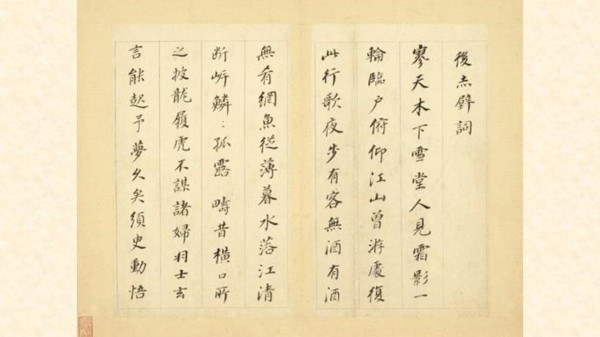 後赤壁詞
寥天木下雪堂人見霜影一
輪臨戶俯仰江山曾游處復
此行歌夜步有客無酒有酒
無肴網魚從薄暮水落江清
断岍鱗〻孤露 疇昔橫口所
之披龍領虎不謀諸婦羽士玄
言能起予夢久矣須臾動悟